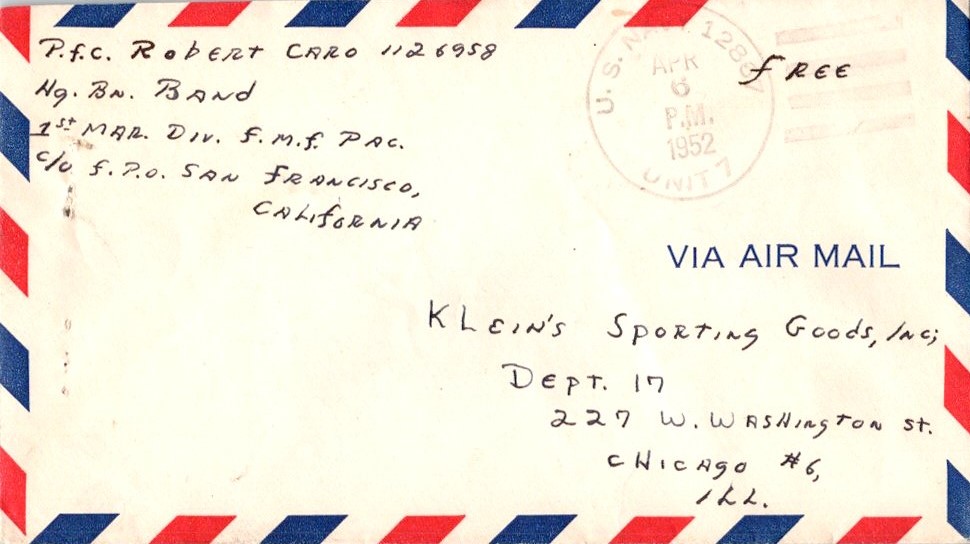 P.f.c. Robert Caro 1126958
Hq. Bn. Band
1st Mar. Div. F.M.F. Pac.
c/o F.P.O. San Francisco,
California
U.S. NAVY 12867
APR
6
P.M.
1952
UNIT 7
FREE
VIA AIR MAIL
Klein's Sporting Goods, Inc;
Dept. 17
227 W. Washington St.
Chicago #6,
Ill.